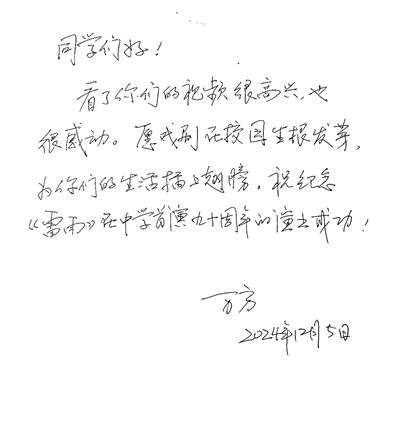 同学们好！
看了你们的视频很高兴，也
很感动。愿戏剧在校园生根发芽，
为你们的生活插上翅膀。祝纪念
《雷雨》在中学首演九十周年的演出成功！
万方
2024年12月5日